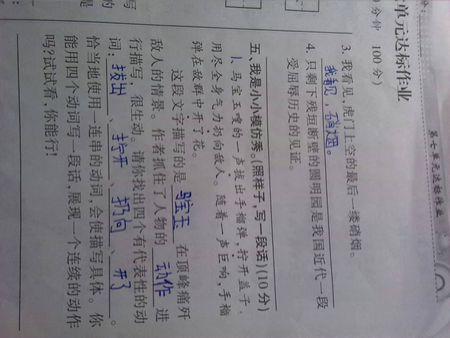 第七单元达标作业
单元达标作业
分钟 100分)
3.我看见,虎门上空的最后一缕硝烟。
我看见,硝烟。
4.只剩下残垣断壁的圆明园是我国近代一段
受屈辱历史的见证。
五、我是小小模仿秀。(照样子,写一段话)(10分)
1.马宝玉嗖的一声拔出手榴弹,拧开盖子,
用尽全身气力扔向敌人。随着一声巨响,手榴
弹在敌群中开了花。
这段文字描写的是 马宝玉 在顶峰痛歼
敌人的情景。作者抓住了人物的 动作 进
行描写,很生动。请你找出四个有代表性的动
词: 拔出 、 拧开 、 扔向 、 开了 。
恰当地使用一连串的动词,会使描写具体。你
能用四个动词写一段话,展现一个连续的动作
吗?试试看,你能行!